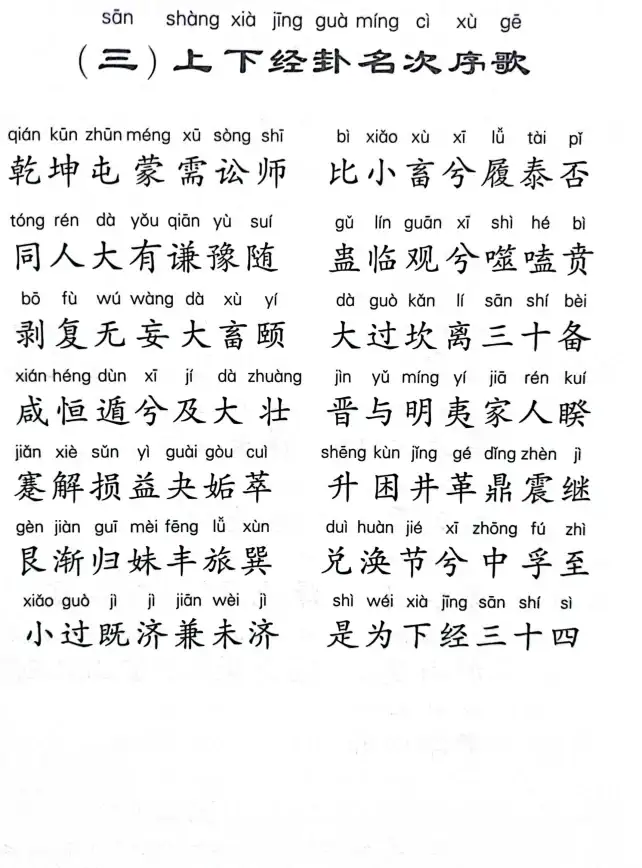 sān shàng xià jīng guà míng cì xù gē
(三)上下经卦名次序歌
qián kūn zhūn méng xū sòng shī bì xiǎo xù xī lǚ tài pǐ
乾坤屯蒙需讼师 比小畜兮履泰否
tóng rén dà yǒu qiān yù suí gǔ lín guān xī shì hé bì
同人大有谦豫随 蛊临观兮噬嗑贲
bō fù wú wàng dà xù yí dà guò kǎn lí sān shí bèi
剥复无妄大畜颐 大过坎离三十备
xián héng dùn xī jí dà zhuàng jìn yǔ míng yí jiā rén kuí
咸恒遁兮及大壮 晋与明夷家人睽
jiǎn xiè sǔn yì guài gòu cuì shēng kùn jǐng gé dǐng zhèn jì
蹇解损益夬姤萃 升困井革鼎震继
gèn jiàn guī mèi fēng lǚ xùn duì huàn jié xī zhōng fú zhì
艮渐归妹丰旅巽 兑涣节兮中孚至
xiǎo guò jì jì jiān wèi jì shì wéi xià jīng sān shí sì
小过既济兼未济 是为下经三十四